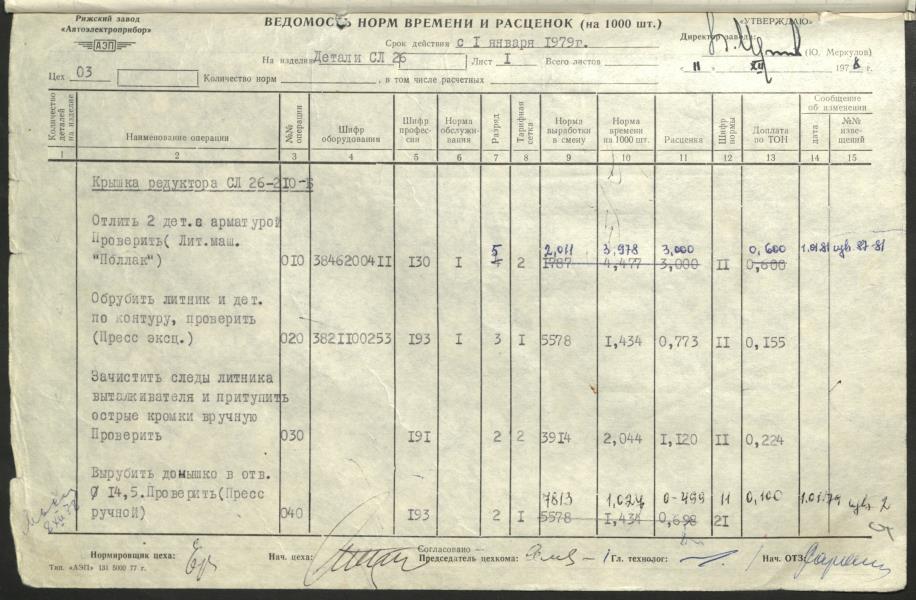 Рижский завод
«Автоэлектроприбор»
АЭП
ВЕДОМОСТЬ НОРМ ВРЕМЕНИ И РАСЦЕНОК (на 1000 шт.)
«УТВЕРЖДАЮ»
Срок действия с I января 1979г.
Директор завода:
(Ю. Меркулов)
На изделия Детали СЛ 26 Лист I Всего листов
« 11 » XII 1978 г.
Цех 03 Количество норм , в том числе расчетных
Количество деталей на изделие
Наименование операции
№№ операции
Шифр оборудования
Шифр профессии
Норма обслуживания
Разряд
Тарифная сетка
Норма выработки в смену
Норма времени на 1000 шт.
Расценка
Шифр нормы
Доплата по ТОН
Сообщение об изменении
дата
№№ извещений
1 2 3 4 5 6 7 8 9 10 11 12 13 14 15
Крышка редуктора СЛ 26-210-Б
Отлить 2 дет.с арматурой
Проверить( Лит.маш. 5 2,011 3,978 3,000 0,600 1.01.81 изв 27-81
"Поллак") 010 3846200411 130 I 2 1787 4,477 3,000 II 0,600
Обрубить литник и дет.
по контуру, проверить
(Пресс эксц.) 020 3821100253 193 I 3 I 5578 I,434 0,773 II 0,155
Зачистить следы литника
выталкивателя и притупить
острые кромки вручную
Проверить 030 191 2 2 3914 2,044 I,120 II 0,224
Вырубить донышко в отв.
Ø 14,5.Проверить(Пресс 7813 1,024 0-499 11 0,100 1.01.79 изв 2
ручной) 040 193 2 I 5578 I,434 0,698 2I
Нормировщик цеха:
Нач. цеха:
Согласовано —
Председатель цехкома:
Гл. технолог:
Нач. ОТЗ:
Тип. «АЭП» 131 5000 77 г.